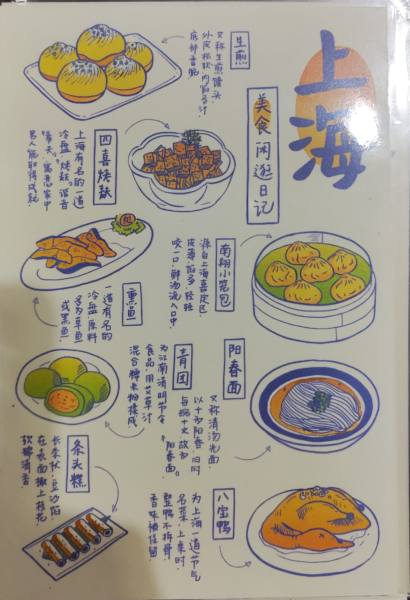 上海
美食闲逛日记
生煎
又称生煎馒头
外皮松软内馅多汁
底部香脆
四喜烤麸
上海有名的一道
冷盘 烤麸谐音
南翔小笼包
源自上海嘉定区
皮薄、馅多、轻轻
咬一口鲜汤流入口中
熏鱼
一道有名的
冷盘原料
多为草鱼
或黑鱼
阳春面
又称清汤光面
以十为阳春 旧时
每碗十文故名
“阳春面”
青团
为江南清明节令
食品,用艾草汁
混合糯米粉揉成
条头糕
长条状,豆沙馅
在表面撒上桂花
软糯清香
八宝鸭
为上海一道节气
名菜,上桌时
整鸭不拆骨
香味被住留